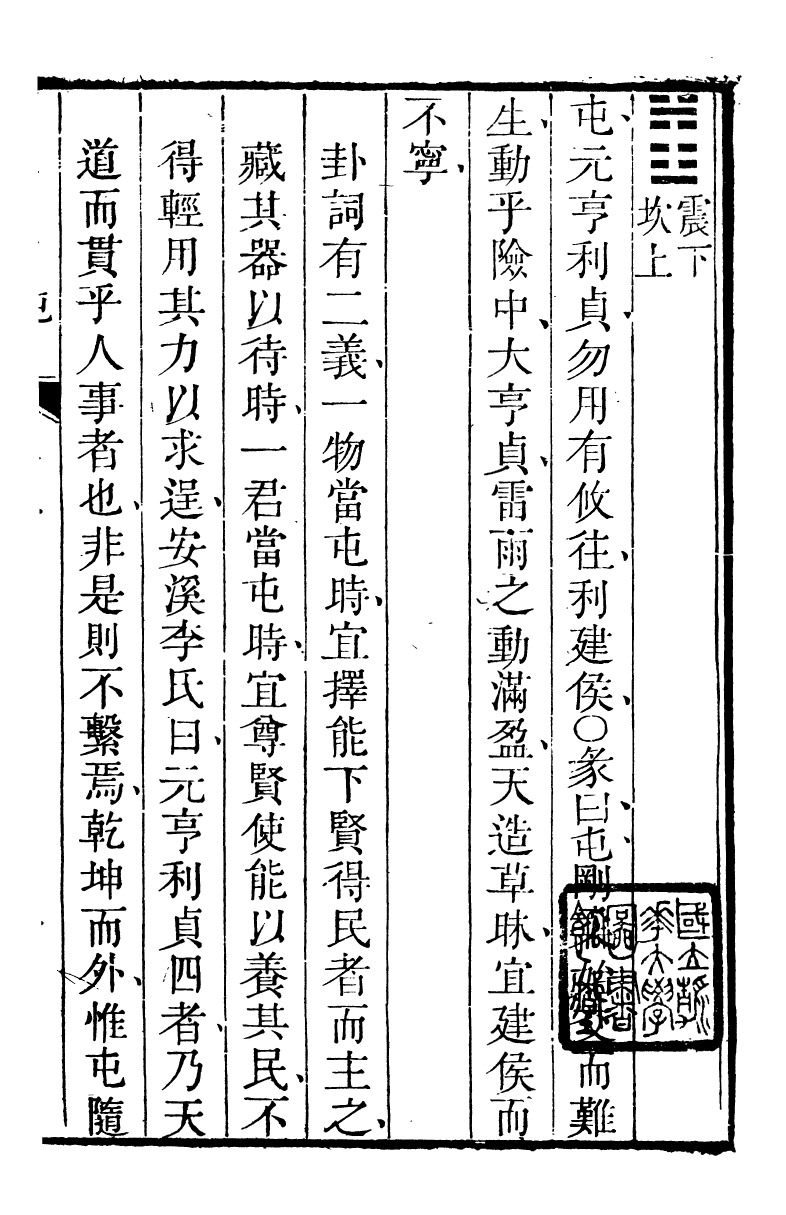 ䷂震下
坎上
屯元亨利貞勿用有攸往利建侯○彖曰屯剛柔始交而難
生動乎險中大亨貞雷雨之動滿盈天造草昧宜建侯而
不寧
卦詞有二義一物當屯時宜擇能下賢得民者而主之
藏其器以待時一君當屯時宜尊賢使能以養其民不
得輕用其力以求逞安溪李氏曰元亨利貞四者乃天
道而貫乎人事者也非是則不繫焉乾坤而外惟屯隨
國立清
華大學
圖書
館藏